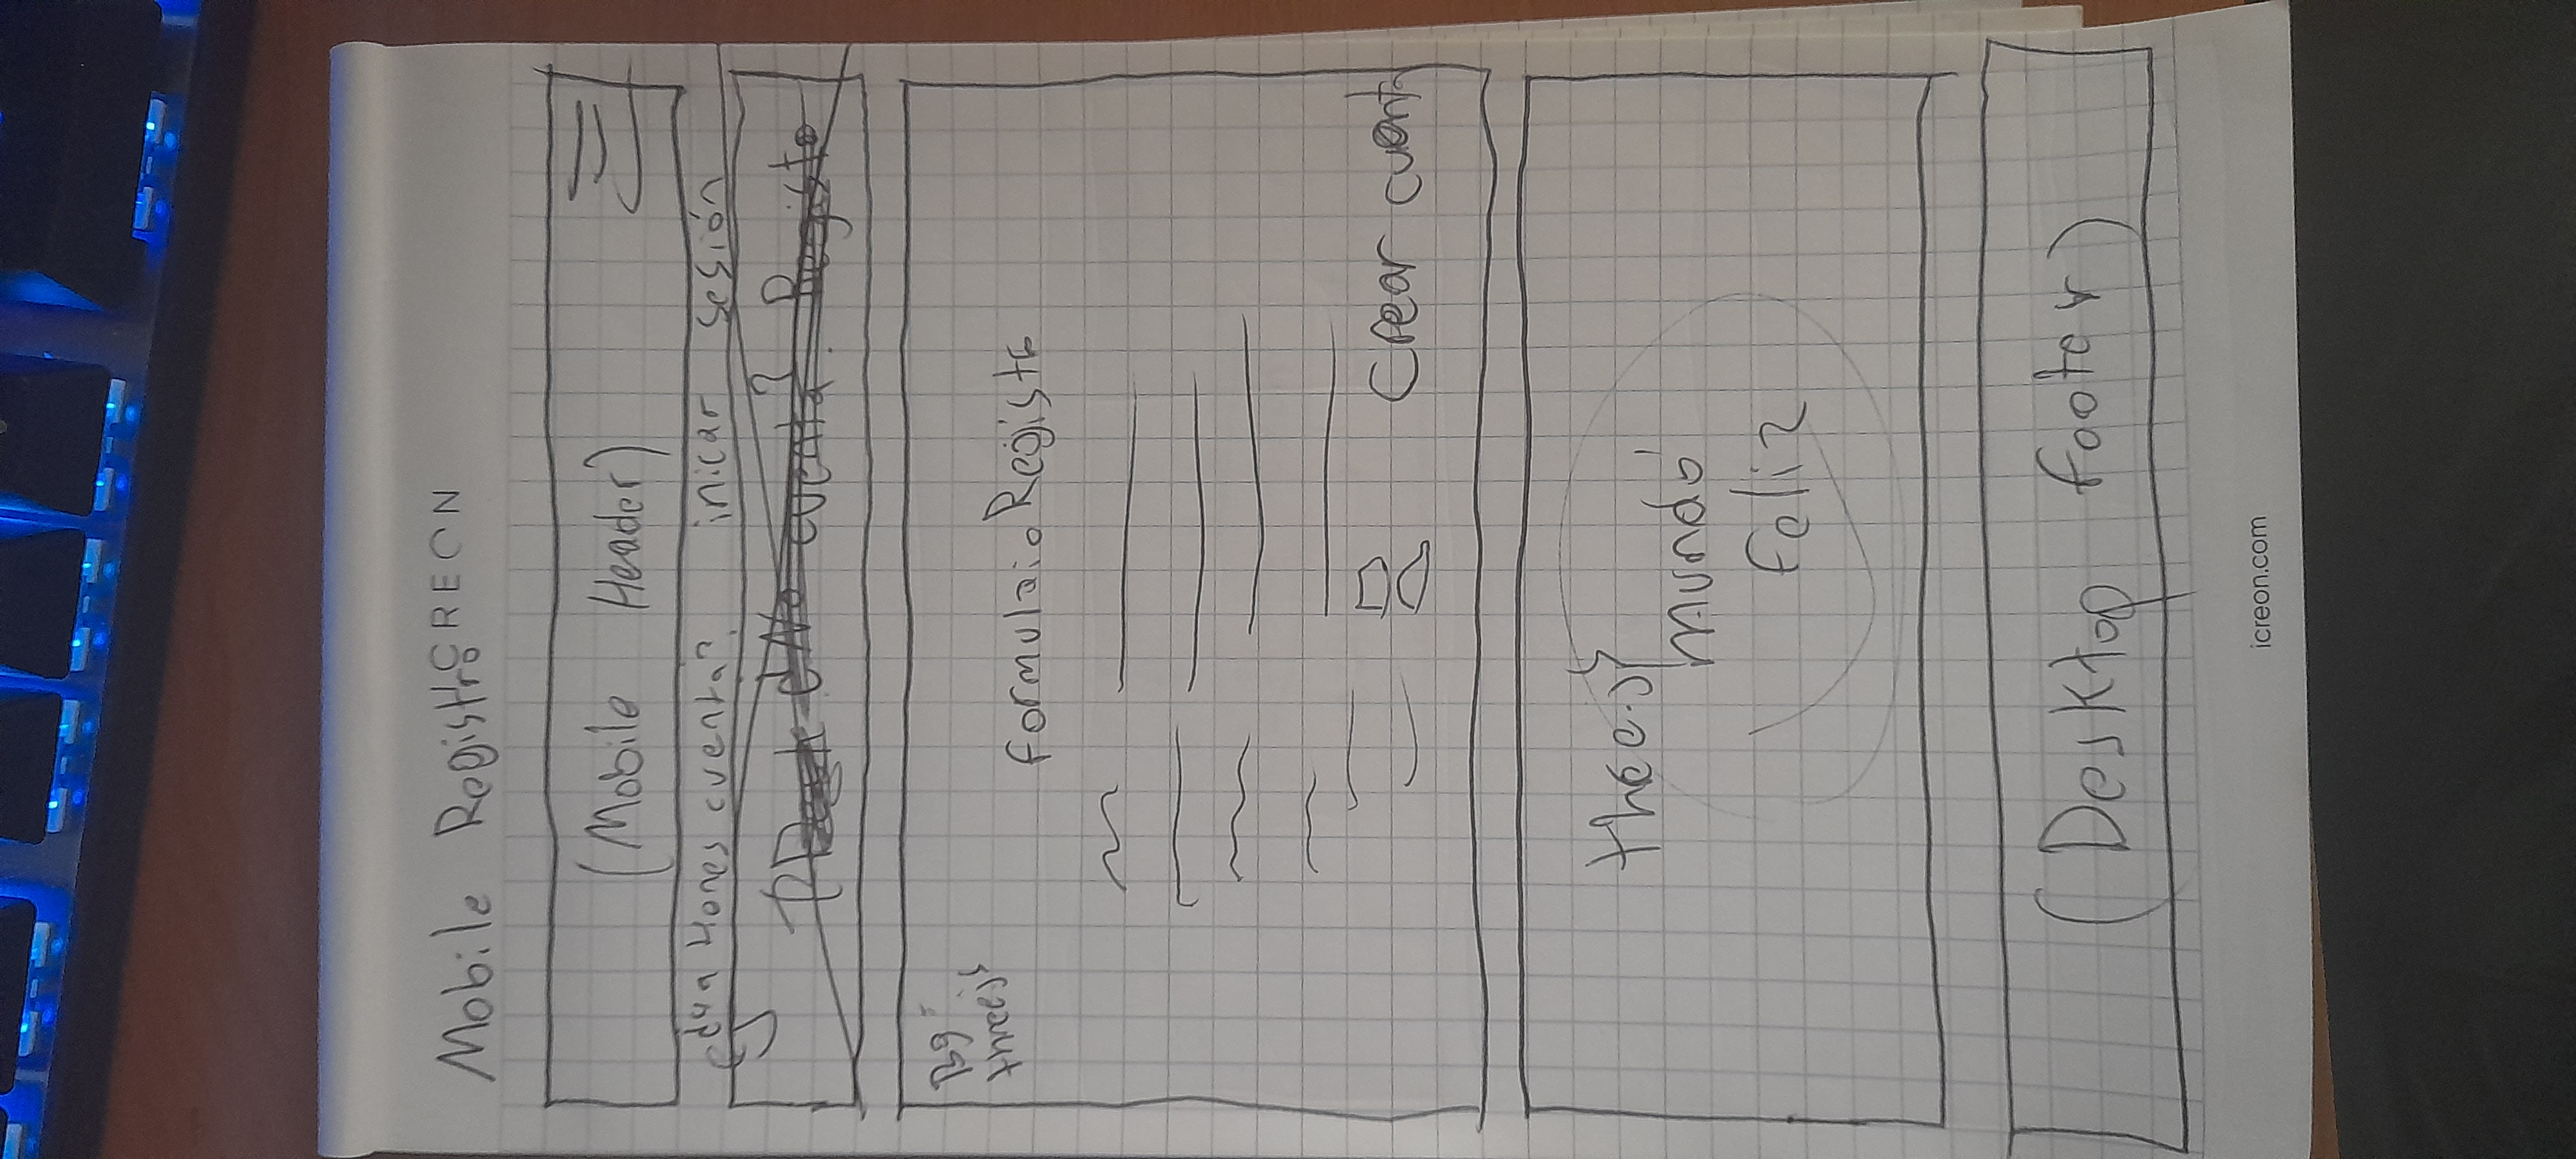 Mobile Registro
CREON
(Mobile Header)
¿ya tienes cuenta? inicar sesión
¿No cuenta? Registo
Bg
threejs
formulaio Registro
Crear cuenta
thee.js
mundo
feliz
(Desktop footer)
icreon.com